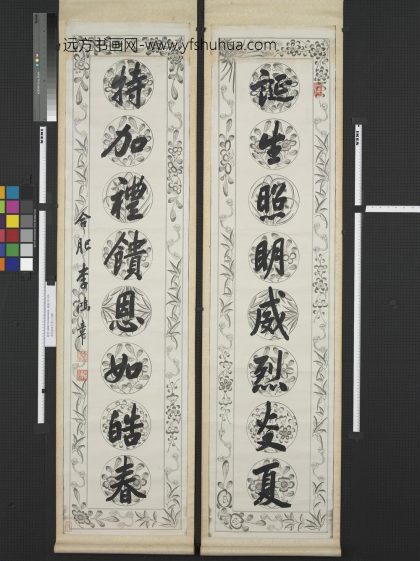 远方书画网-www.yfshuhua.com
誕生照明威烈炎夏
特加禮饋恩如皓春
合肥李鴻章